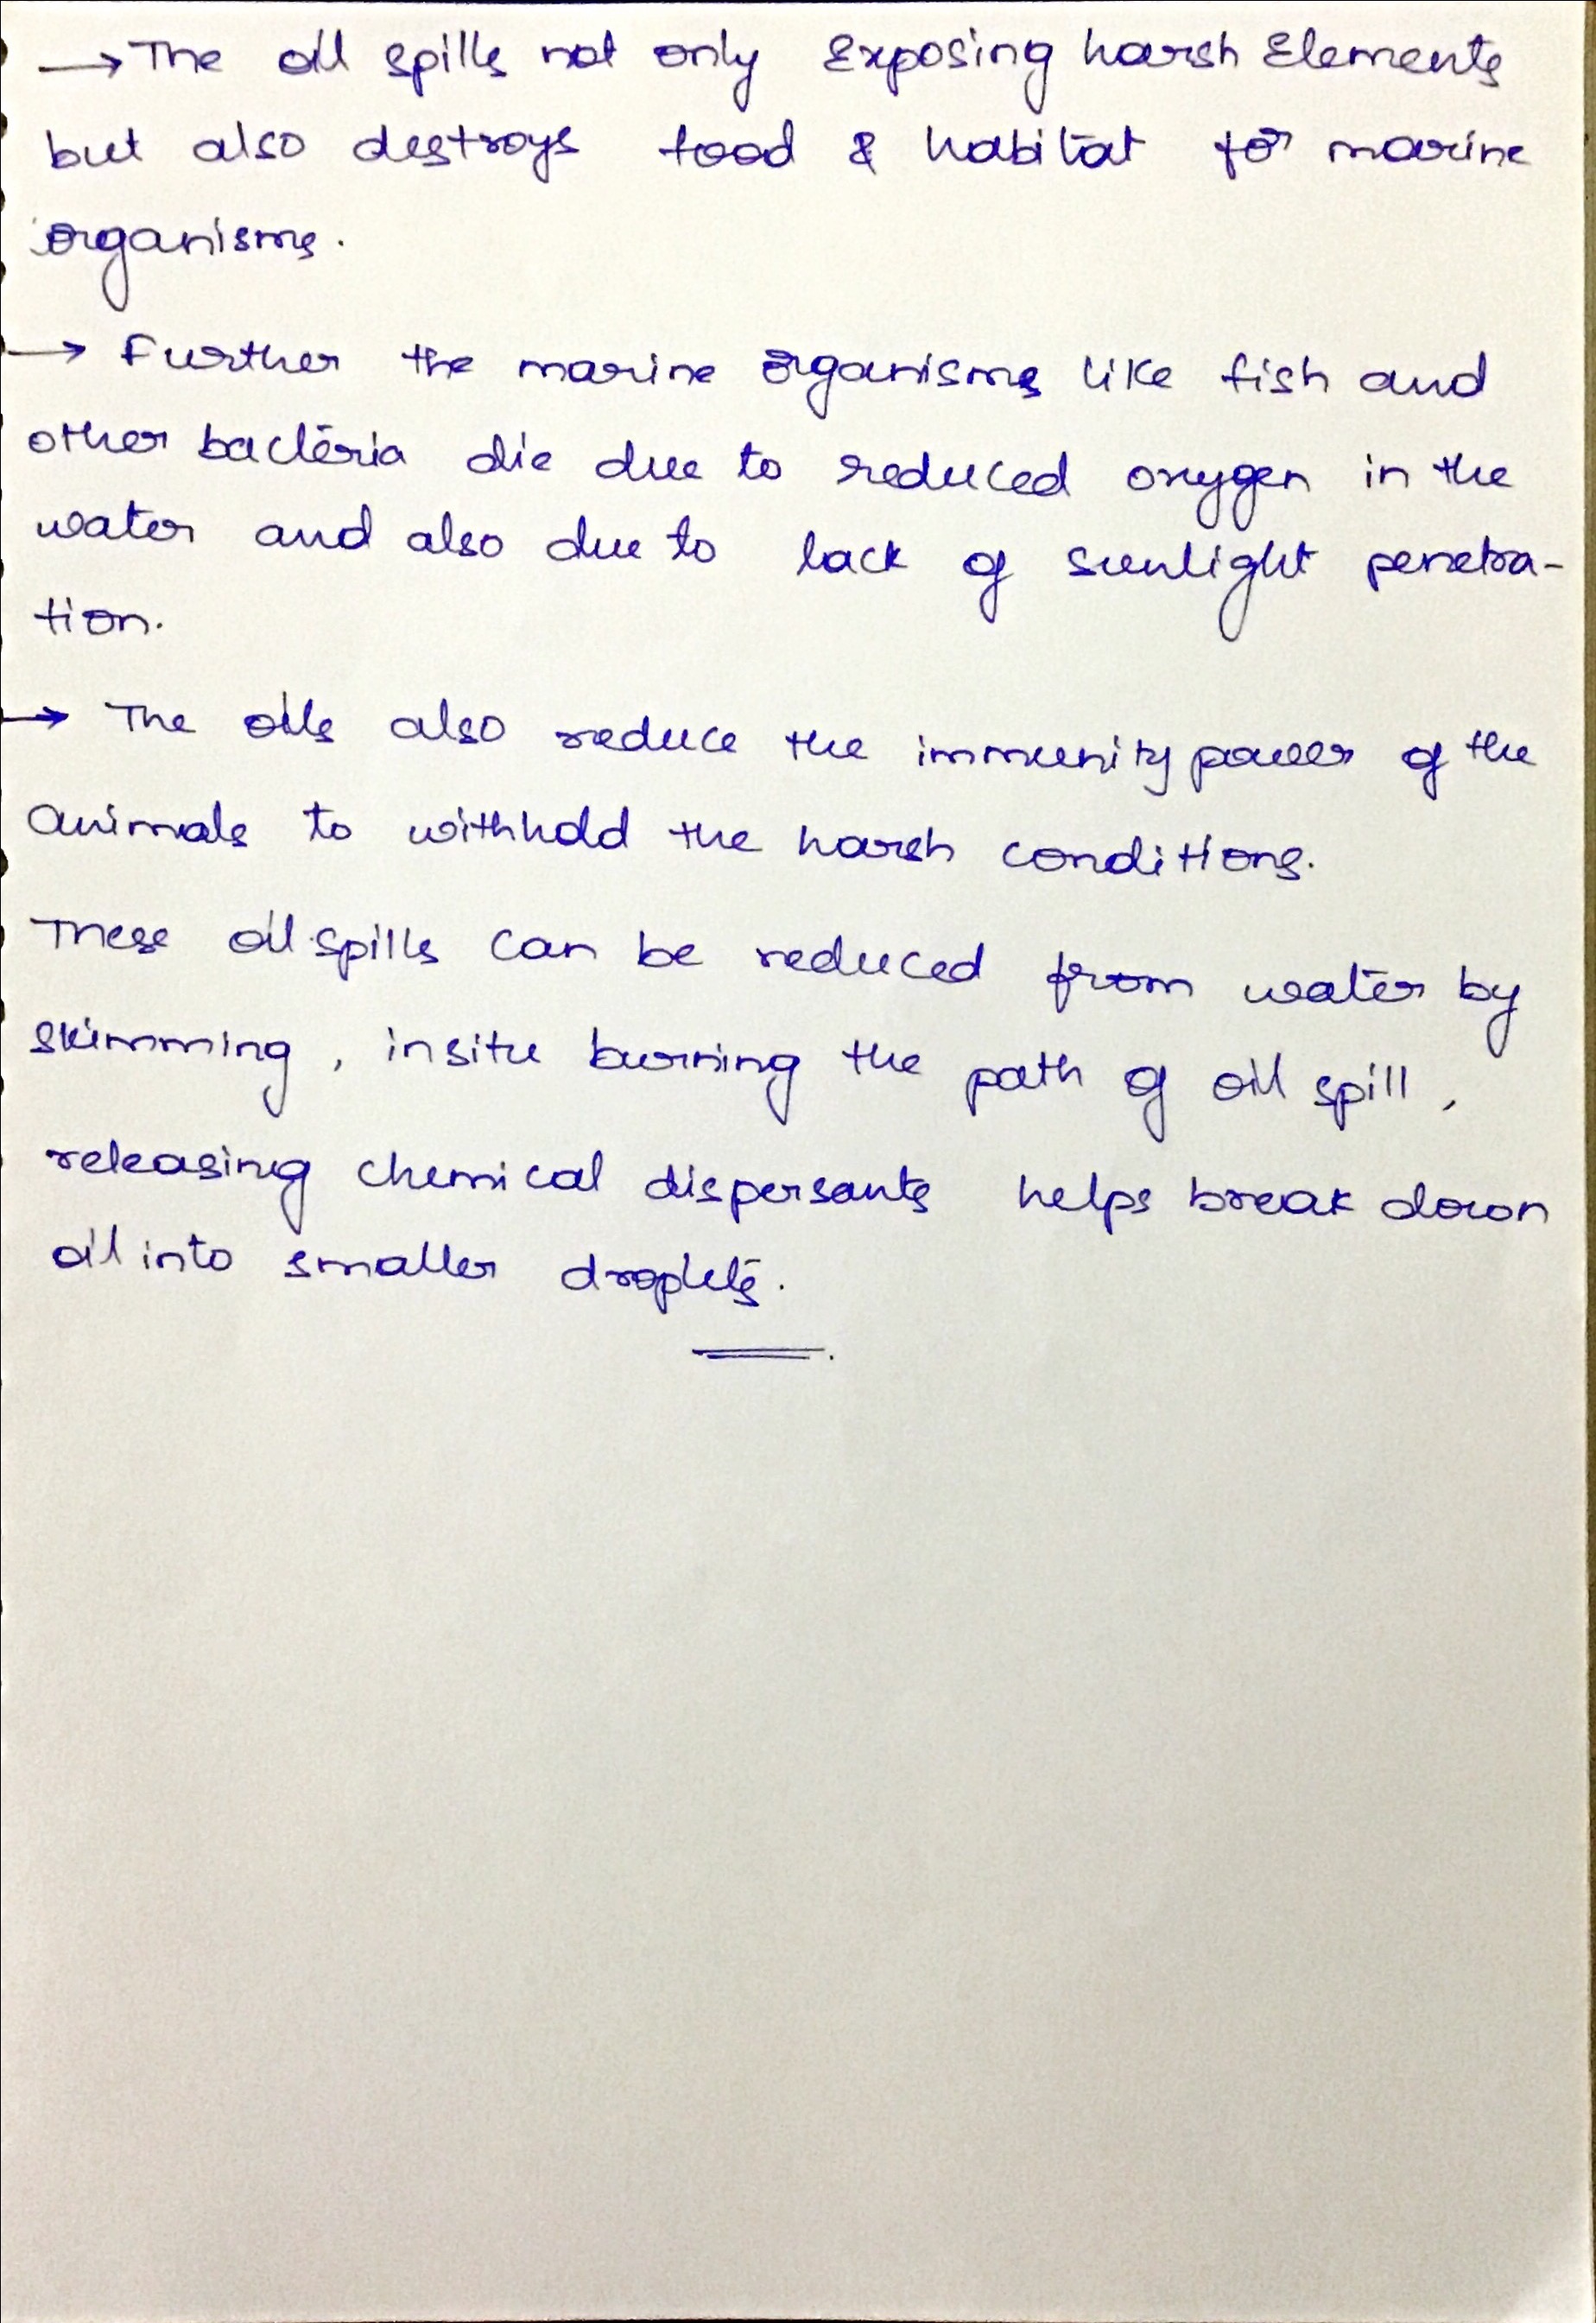 → The oil spills not only Exposing harsh Elements
but also destroys food & habitat for marine
organisms.
→ Further the marine organisms like fish and
other bacteria die due to reduced oxygen in the
water and also due to lack of sunlight penetra-
tion.
→ The oils also reduce the immunity power of the
animals to withhold the harsh conditions.
These oil spills can be reduced from water by
skimming, insitu burning the path of oil spill,
releasing chemical dispersants helps break down
oil into smaller droplets.